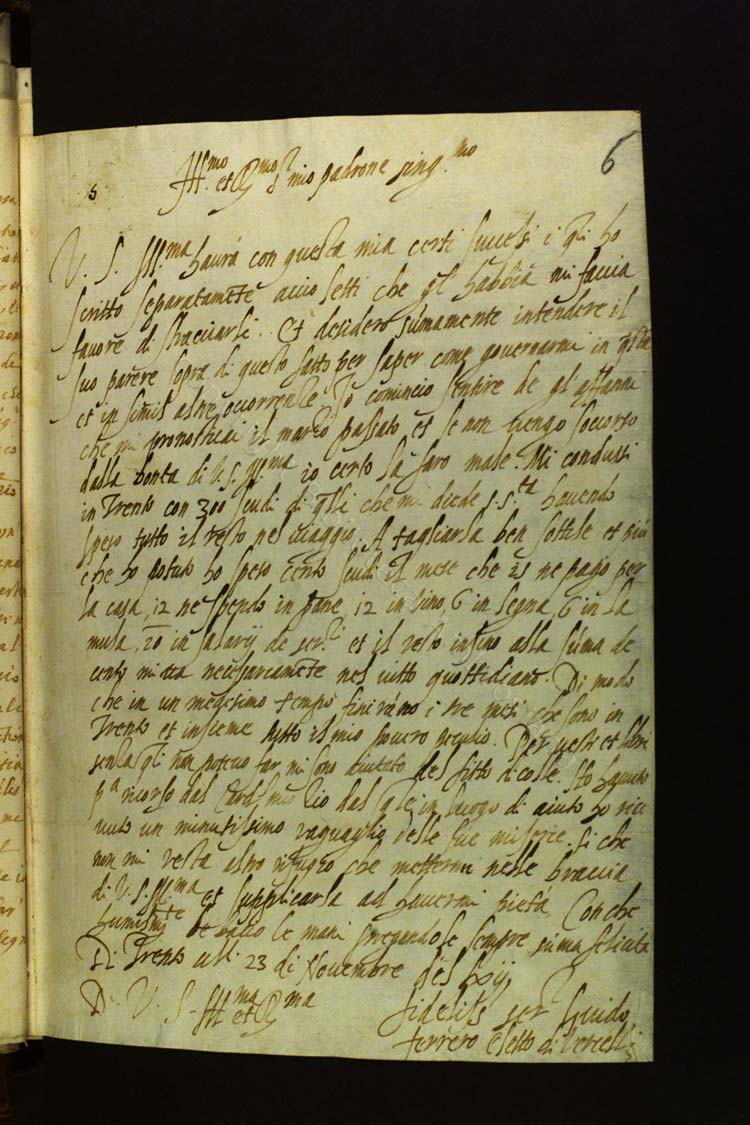 6
s
Ill.mo et R.mo S.r mio padrone sing.mo
V. S. Ill.ma haurà con questa mia certi successi i q.li ho
scritto separatamẽte acciò letti che gl' habbia mi faccia
favore di stracciarli. Et desidero sũmamente intendere il
suo parere sopra di questo fatto per saper come governarmi in q.sta
et in simili altre occorrenze. Io comincio sentire de gl' affanni
che mi pronosticai il marzo passato et se non vengo soccorso
dalla bontà di V. S. Ill.ma io certo la farò male. Mi condussi
in Trento con 300 scudi di q.lli che mi diede S. S.tà havendo
speso tutto il resto nel viaggio. A tagliarla ben sottile et più
che ho potuto ho speso cento scudi il mese che 25 ne pago per
la casa, 12 ne spendo in pane, 12 in vino, 6 in legna, 6 in la
mula, 20 in salarij de ser.ri et il resto insino alla sũma de
cento mi va necessariamẽte nel vitto quottidiano. Di modo
che in un medesimo tempo finiranno i tre mesi che sono in
Trento et insieme tutto il mio povero peculio. Per vesti et libri
senza q.li non potevo far mi sono aiutato del fitto di
p.a ricorso dal Card.l mio zio dal q.le in luogo di aiuto ho rice
vuto un minutissimo raguaglio delle sue miserie. Si che
non mi resta altro refugio che mettermi nelle braccia
di V. S. Ill.ma et supplicarla ad havermi pietà. Con che
humilm.te le bacio le mani pregandole sempre sũma felicità
Di Trento alli 23 di Novembre del lxij
D. V. S. Ill.ma et R.ma
fidelis ser.r Guido
ferrero eletto di Vercelli